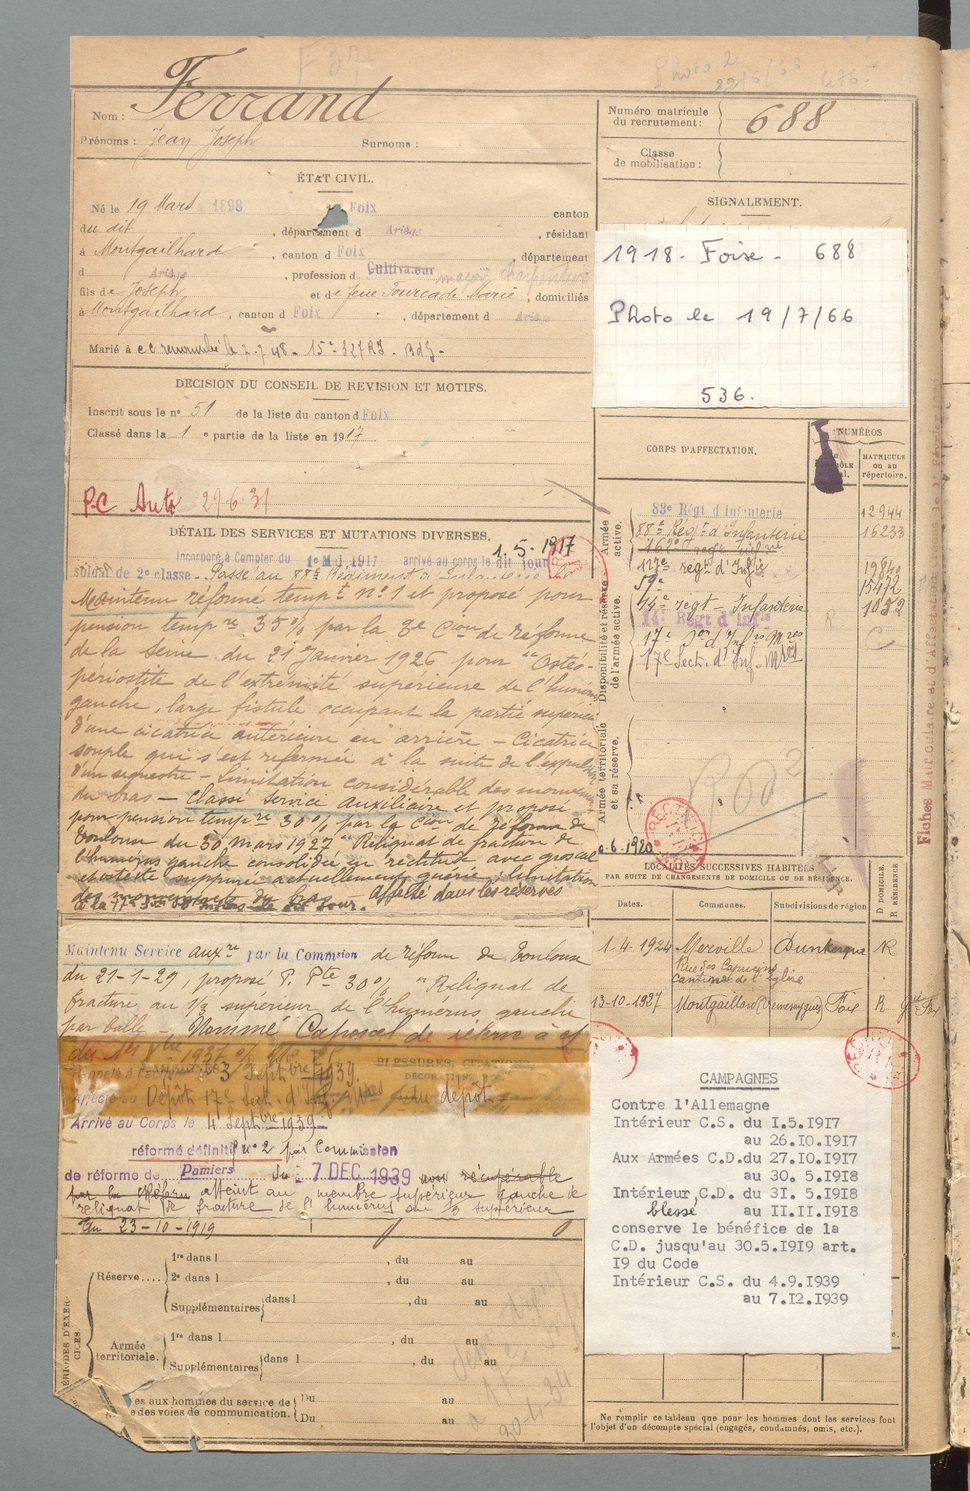 F 27
Photo le 22/6/68 676
Ferrand
Nom :
Prénoms : Jean Joseph Surnoms :
Numéro matricule du recrutement : 688
Classe de mobilisation :
ÉTAT CIVIL.
Né le 19 Mars 1898 Foix canton
du dit, département d Ariège, résidant
à Montgailhard, canton d Foix, département
d Ariège, profession d Cultivateur maçon charpentier
fils de Joseph et de feue Fourcade Marie, domiciliés
à Montgailhard, canton d Foix, département d Ariège
Marié à
SIGNALEMENT.
1918. Foix - 688
Photo le 19/7/66
536.
DECISION DU CONSEIL DE REVISION ET MOTIFS.
Inscrit sous le nº 51 de la liste du canton d Foix
Classé dans la 1 e partie de la liste en 1917
P.C Auto 29.6.31
DÉTAIL DES SERVICES ET MUTATIONS DIVERSES.
Incorporé à Compter du 1º Mai 1917 arrivé au corps le dit jour 1.5.1917
soldat de 2e classe - Passé au 88e Régiment d'Infanterie
Maintenu réformé tempre nº 1 et proposé pour
pension tempre 35% par la 3e Cion de réforme
de la Seine du 21 Janvier 1926 pour "Ostéo-
périostite de l'extrémité supérieure de l'humérus
gauche, large fistule occupant la partie supérieure
d'une cicatrice antérieure en arrière - Cicatrice
souple qui s'est refermée à la suite de l'expulsion
d'un séquestre - Limitation considérable des mouvements
du bras - Classé Service auxiliaire et proposé
pour pension tempre 30% par la Cion de réforme de
Toulouse du 30 Mars 1927 "Reliquat de fracture de
l'humérus gauche consolidée en rectitude avec gros cal
et ostéite suppurée actuellement guérie, limitation
affecté dans les réserves
Maintenu Service auxre par la Commission de réforme de Toulouse
du 21-1-29, proposé P. Pte 30% "Reliquat de
fracture au 1/3 supérieur de l'humérus gauche
par balle - Nommé Caporal de réserve à cf
BLESSURES, CITATIONS
3 Septbre 1939
Affecté au Dépôt 17e Sect. d'Inf.
dépôt
Arrivé au Corps le 4 Septbre 1939
réformé définitif nº 2 par Commission
de réforme de Pamiers du 7 DEC. 1939 non récupérable
par la Réforme atteint au membre supérieur gauche de
reliquat de fracture de l'humérus au 1/3 supérieur
Du 23-10-1919
CORPS D'AFFECTATION.
NUMÉROS
MATRICULE ou au répertoire.
Armée active.
83e Régt d'Infanterie 12944
88e Régt d'Infanterie 16233
127e regt d'Infie 19840
59e 15472
Disponibilité et réserve de l'armée active.
14e regt - Infanterie 1052
14e Régt d'Infie R
17e Son d'Infres Mres
17e Sect. d'Inf. Mres
Armée territoriale et sa réserve.
Fiches Matriculaire et d'Affectation
LOCALITÉS SUCCESSIVES HABITÉES
PAR SUITE DE CHANGEMENTS DE DOMICILE OU DE RÉSIDENCE.
Dates. Communes. Subdivisions de région D DOMICILE. R RÉSIDENCE
1.4.1924 Merville Dunkerque R
Rue des Capucins
Cantine de l'église
13-10-1927 Montgaillard Foix R
CAMPAGNES
Contre l'Allemagne
Intérieur C.S. du I.5.I9I7
au 26.IO.I9I7
Aux Armées C.D.du 27.IO.I9I7
au 30. 5.I9I8
Intérieur C.D. du 3I. 5.I9I8
blessé au II.II.I9I8
conserve le bénéfice de la
C.D. jusqu'au 30.5.I9I9 art.
I9 du Code
Intérieur C.S. du 4.9.I939
au 7.I2.I939
Réserve....
1re dans l, du au
2e dans l, du au
Supplémentaires dans l, du au
Armée territoriale.
1re dans l, du au
Supplémentaires dans l, du au
es aux hommes du service de
e des voies de communication.
Du au
Du au
30-4-34
Ne remplir ce tableau que pour les hommes dont les services font
l'objet d'un décompte spécial (engagés, condamnés, omis, etc.).